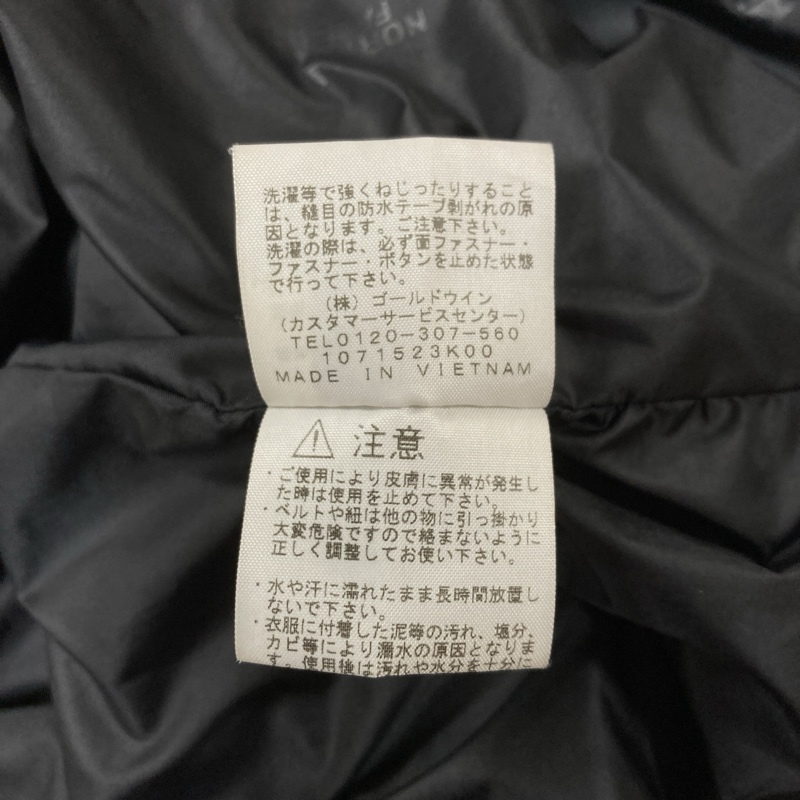 NORT
F
洗濯等で強くねじったりすること
は、縫目の防水テープ剥がれの原
因となります。ご注意下さい。
洗濯の際は、必ず面ファスナー・
ファスナー・ボタンを止めた状態
で行って下さい。
(株) ゴールドウイン
(カスタマーサービスセンター)
TEL0120-307-560
1071523K00
MADE IN VIETNAM
注意
・ご使用により皮膚に異常が発生し
た時は使用を止めて下さい。
・ベルトや紐は他の物に引っ掛かり
大変危険ですので絡まないように
正しく調整してお使い下さい。
・水や汗に濡れたまま長時間放置し
ないで下さい。
・衣服に付着した泥等の汚れ、塩分、
カビ等により漏水の原因となりま
す。使用後は汚れや水分を十分に